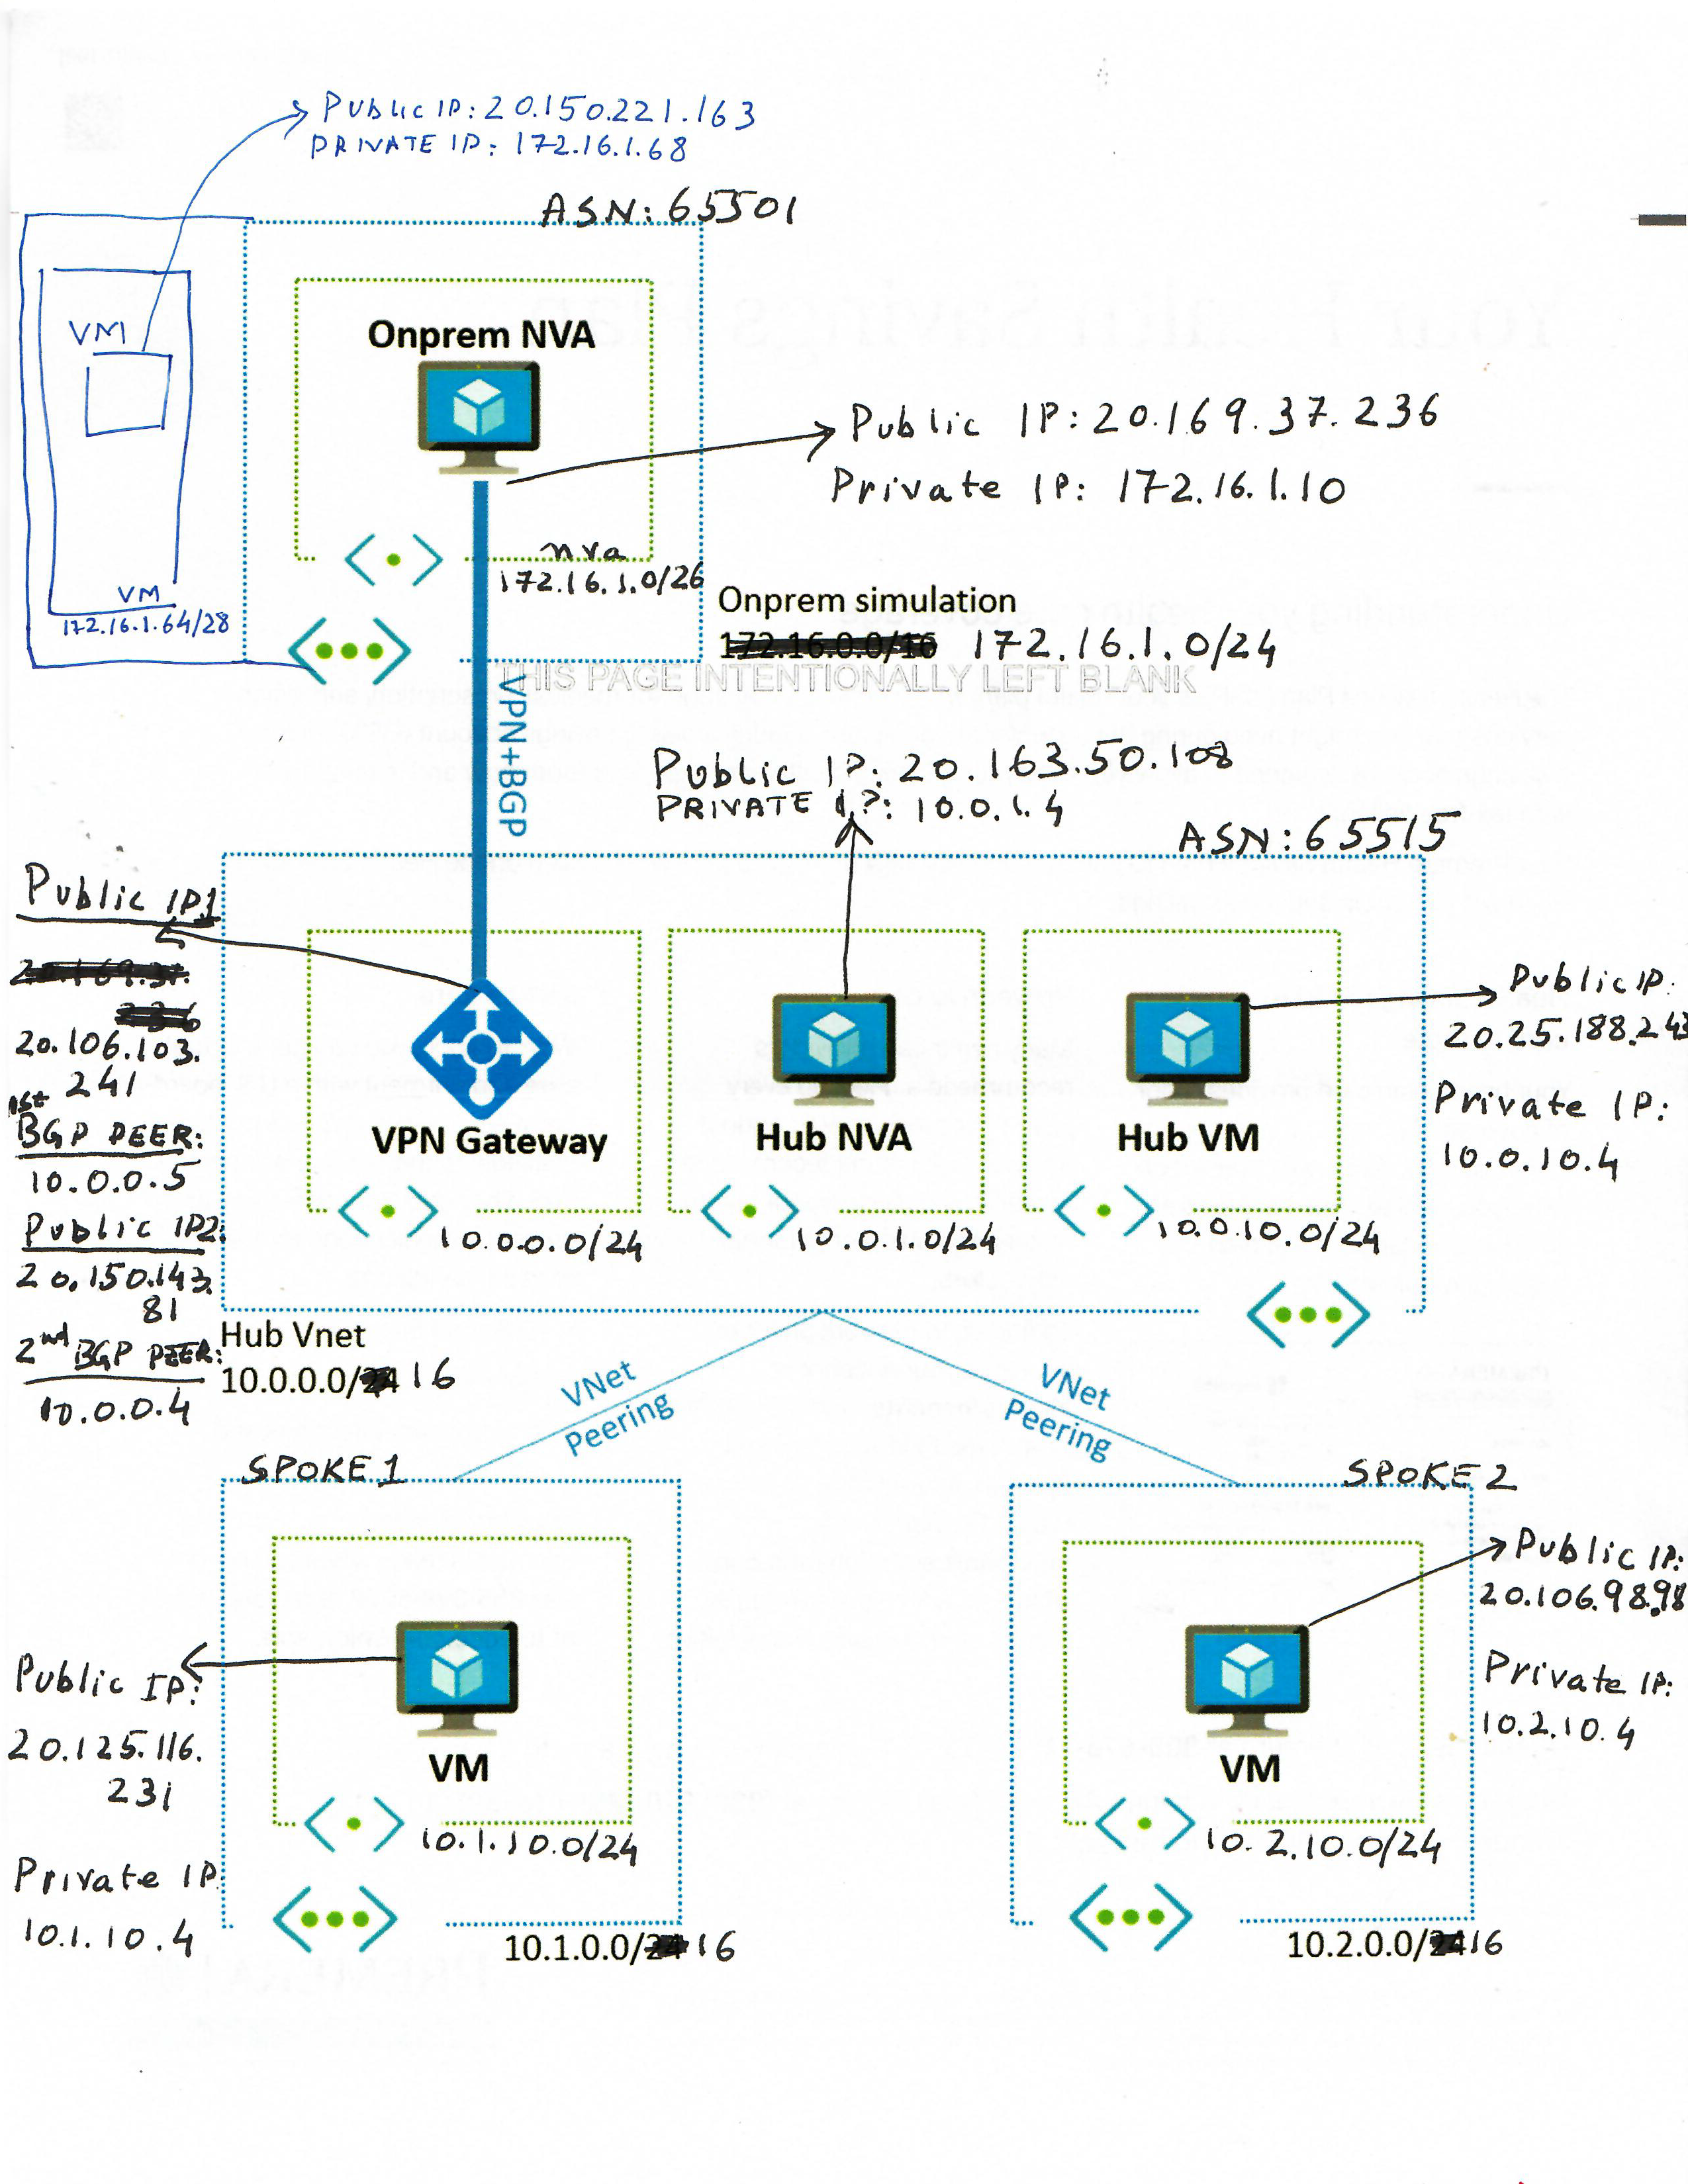 Public IP: 20.150.221.163
PRIVATE IP: 172.16.1.68
ASN: 65501
VM
Onprem NVA
Public IP: 20.169.37.236
Private IP: 172.16.1.10
nva
172.16.1.0/26
VM
172.16.1.64/28
Onprem simulation
172.16.0.0/16 172.16.1.0/24
THIS PAGE INTENTIONALLY LEFT BLANK
VPN+BGP
Public IP: 20.163.50.108
PRIVATE IP: 10.0.1.4
ASN: 65515
Public IP1
20.169.37.
236
20.106.103.
241
1st
BGP PEER:
10.0.0.5
Public IP2:
20.150.143.
81
2nd BGP PEER:
10.0.0.4
VPN Gateway
10.0.0.0/24
Hub NVA
10.0.1.0/24
Hub VM
10.0.10.0/24
Public IP:
20.25.188.243
Private IP:
10.0.10.4
Hub Vnet
10.0.0.0/24 16
VNet
Peering
VNet
Peering
SPOKE 1
SPOKE 2
Public IP:
20.125.116.
231
Private IP
10.1.10.4
VM
10.1.10.0/24
10.1.0.0/24 16
VM
10.2.10.0/24
10.2.0.0/24 16
Public IP:
20.106.98.98
Private IP:
10.2.10.4